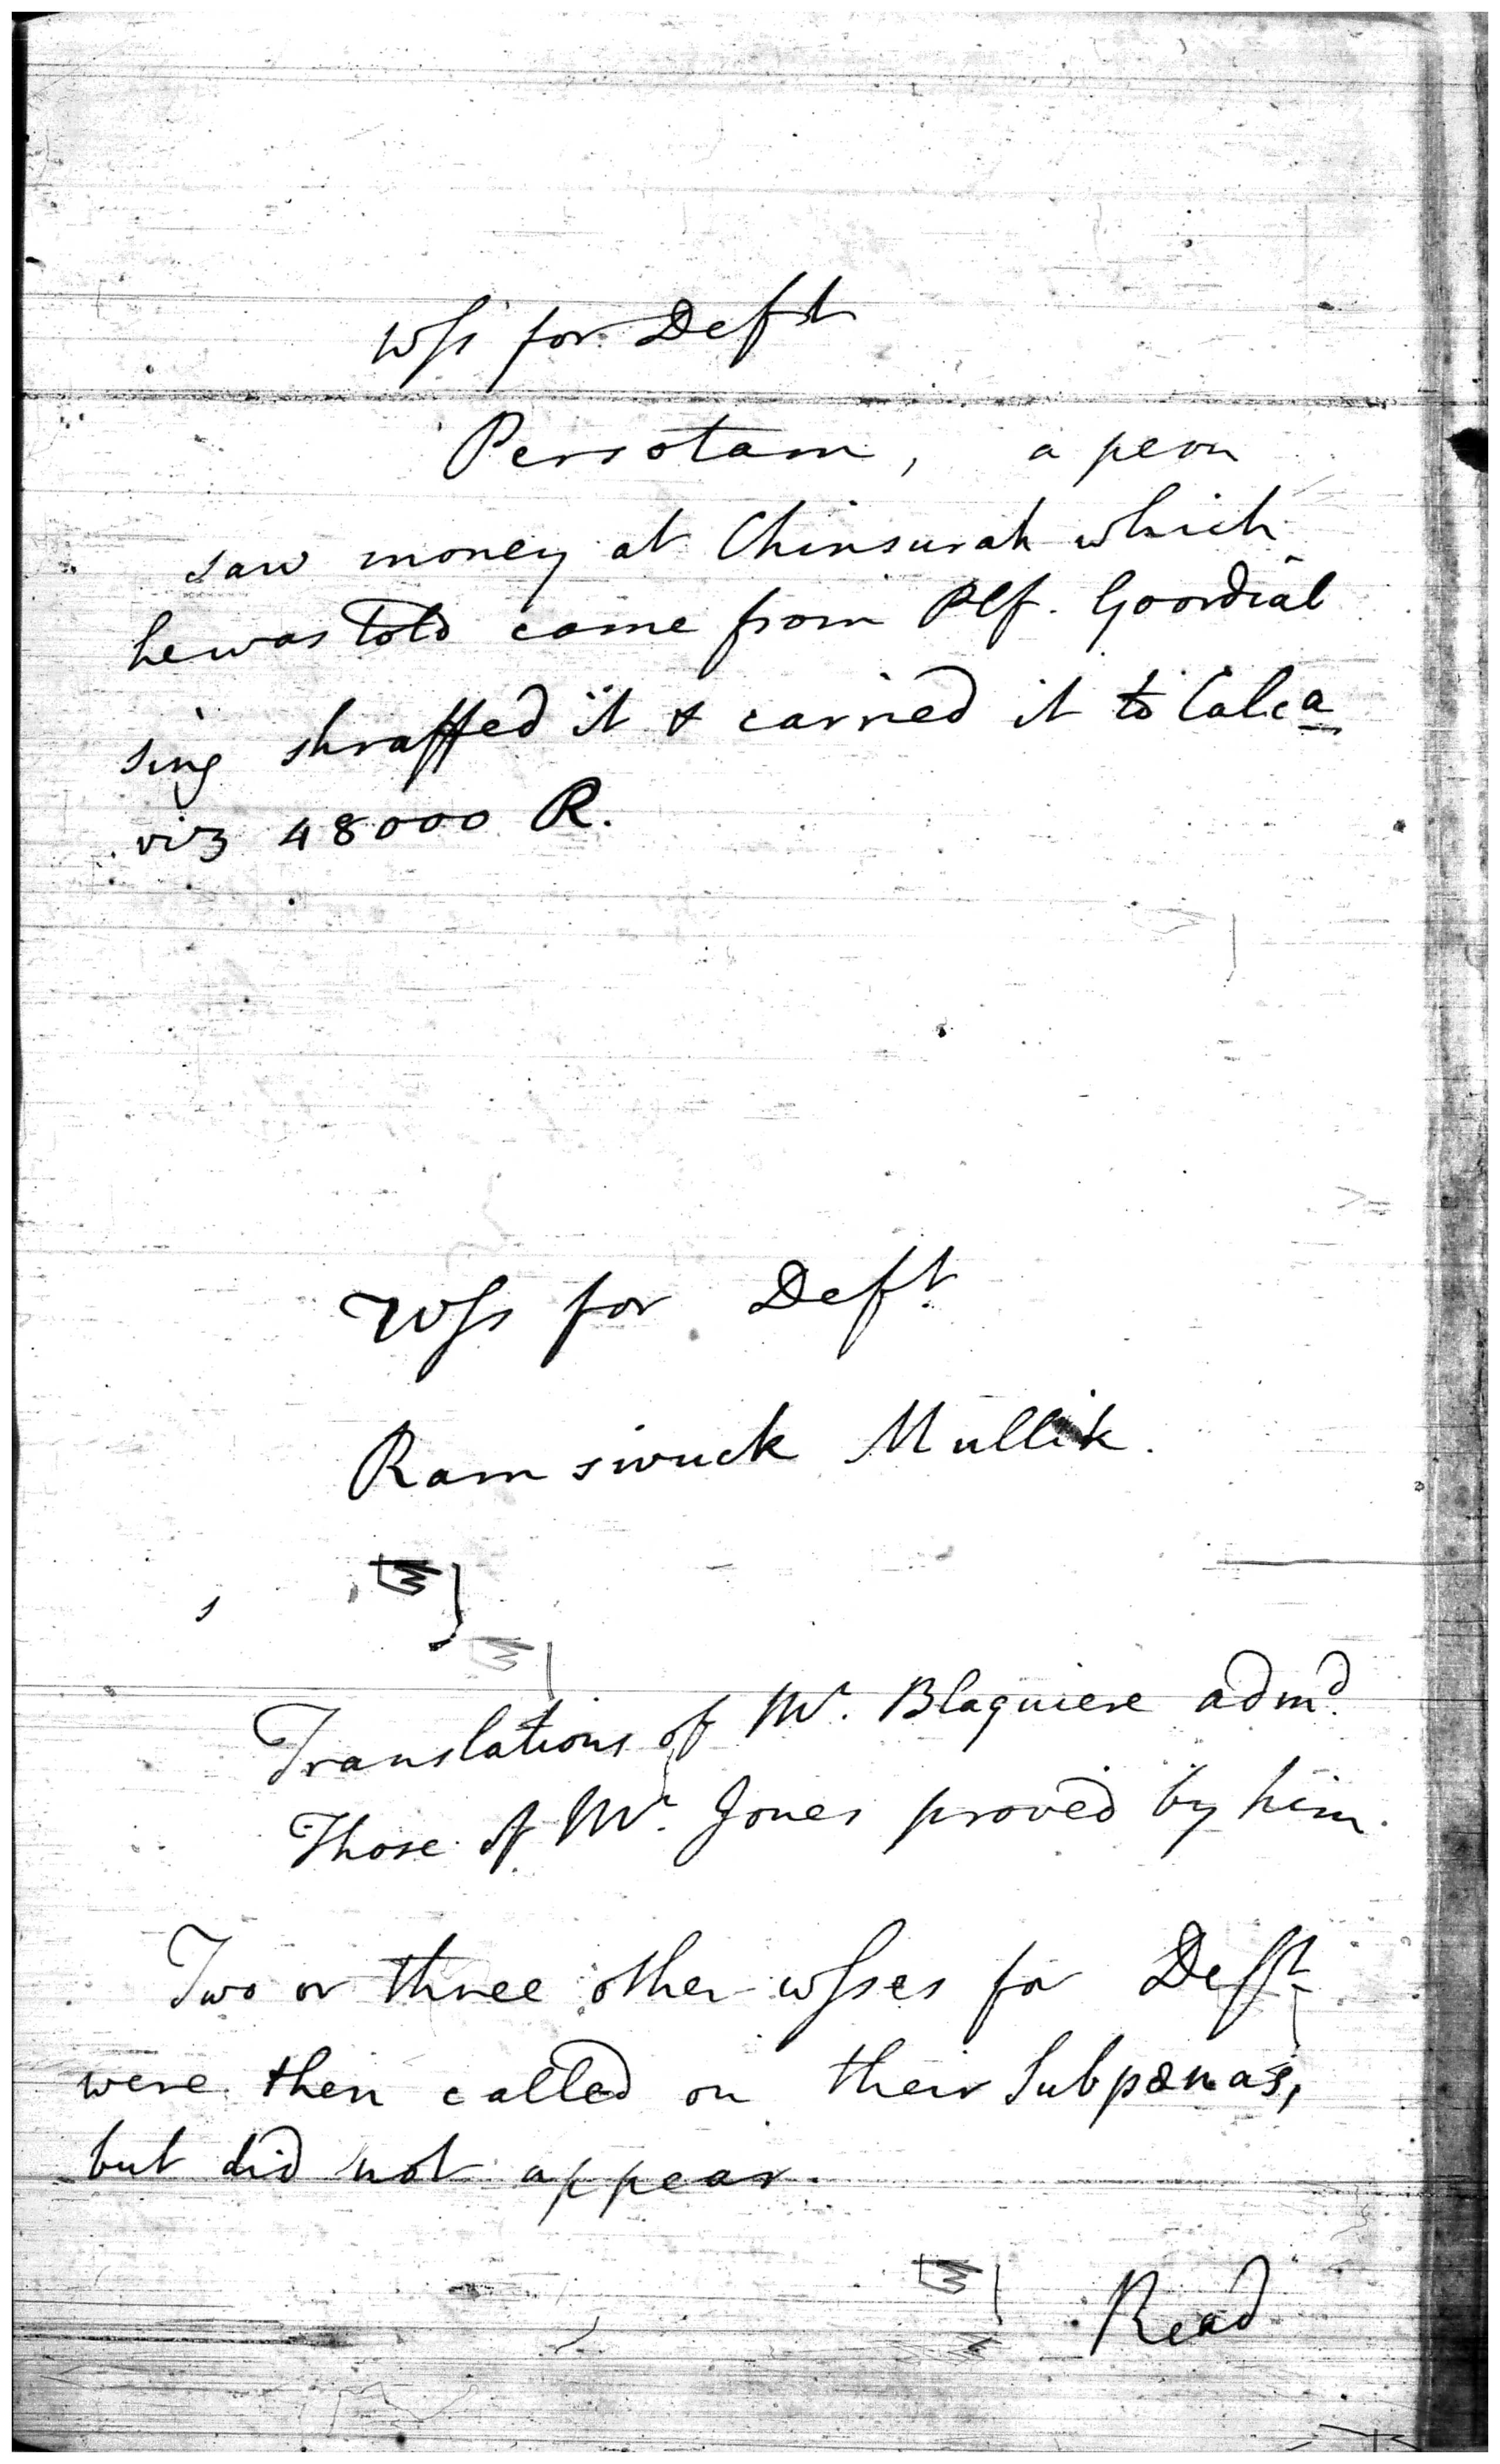 Wss for Deft
Persotam, a peon
saw money at Chinsurah which
he was told came from Plf. Goordial
sing shraffed it & carried it to Calca
viz 48000 R.
Wss for Deft
Ramsivuck Mullik.
Translations of Mr. Blaquiere admd.
Those of Mr. Jones proved by him.
Two or three other wsses for Deft
were then called on their Subpœnas,
but did not appear.
Read